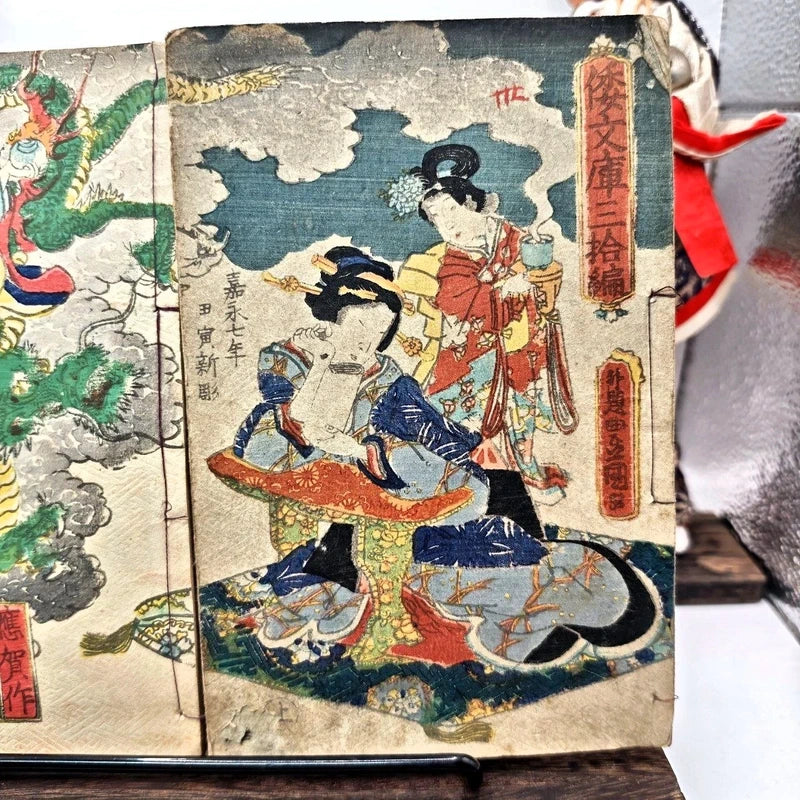 倭文庫三拾編
外題豊国画
嘉永七年
甲寅新彫
上
應賀作